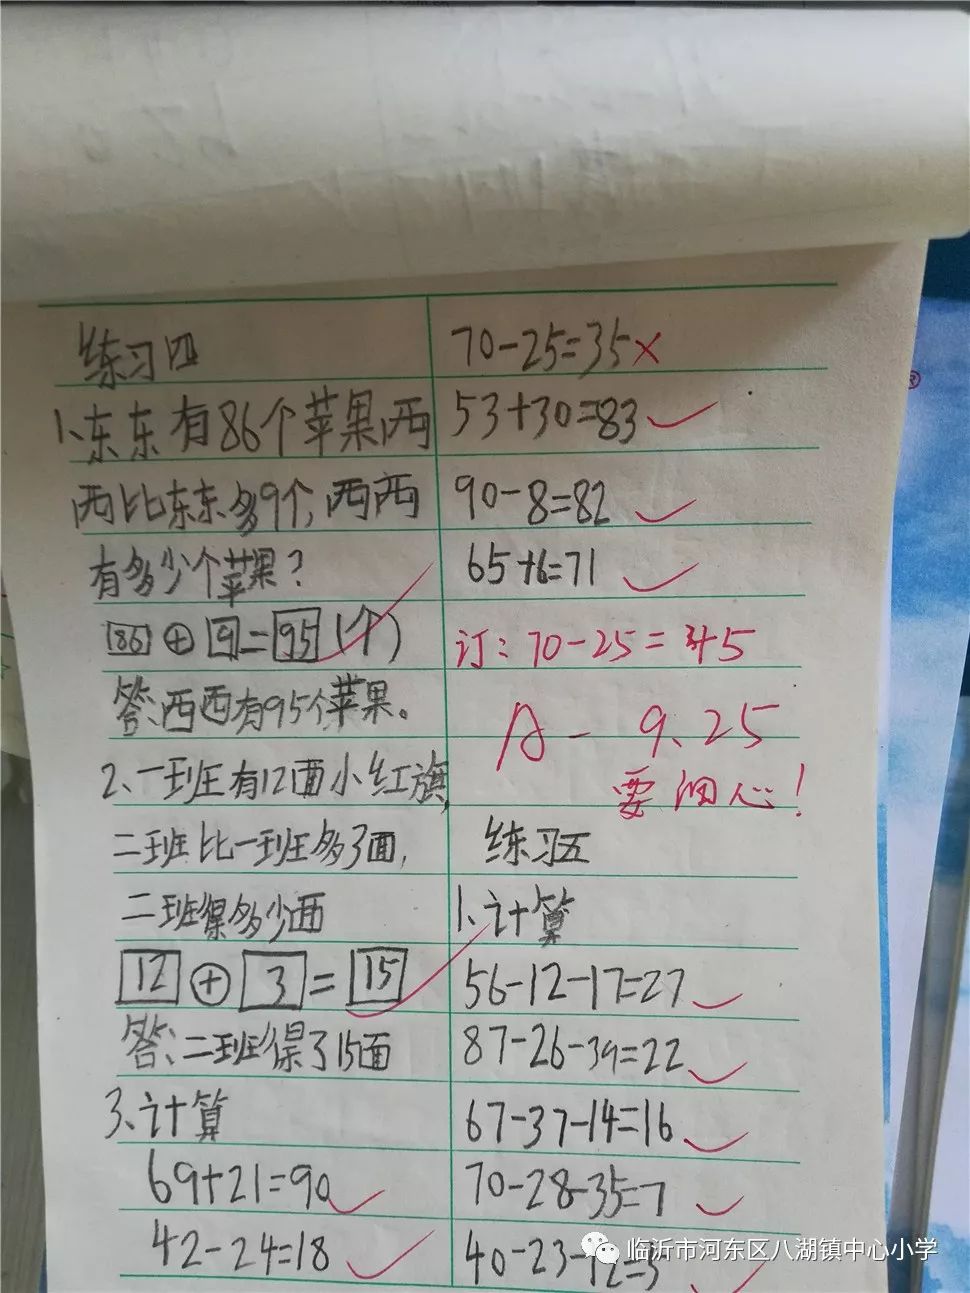 练习四
1、东东有86个苹果,西
西比东东多9个,西西
有多少个苹果?
86+9=95(个)
答:西西有95个苹果。
2、一班有12面小红旗,
二班比一班多3面,
二班得多少面
12+3=15
答:二班得了15面
3、计算
69+21=90
42-24=18
70-25=35×
53+30=83
90-8=82
65+6=71
订:70-25=45
A- 9.25
要细心!
练习五
1、计算
56-12-17=27
87-26-39=22
67-37-14=16
70-28-35=7
40-23-12=5
临沂市河东区八湖镇中心小学